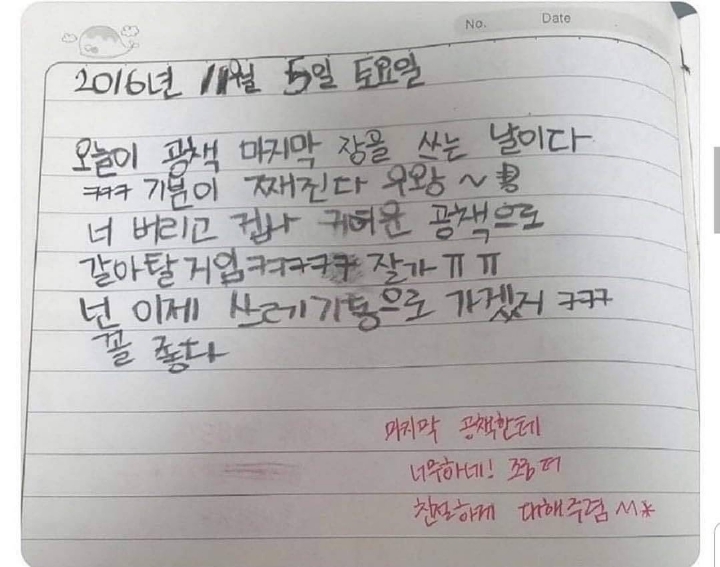 No. Date
2016년 11월 5일 토요일
오늘이 공책 마지막 장을 쓰는 날이다
ㅋㅋㅋ 기분이 째진다 우왕~
너 버리고 겁나 귀여운 공책으로
갈아탈거임ㅋㅋㅋㅋㅋ 잘가 ㅠㅠ
넌 이제 쓰레기통으로 가겠지 ㅋㅋㅋ
꼴 좋다
마지막 공책한테
너무하네! 조금 더
친절하게 대해주렴 ^^*